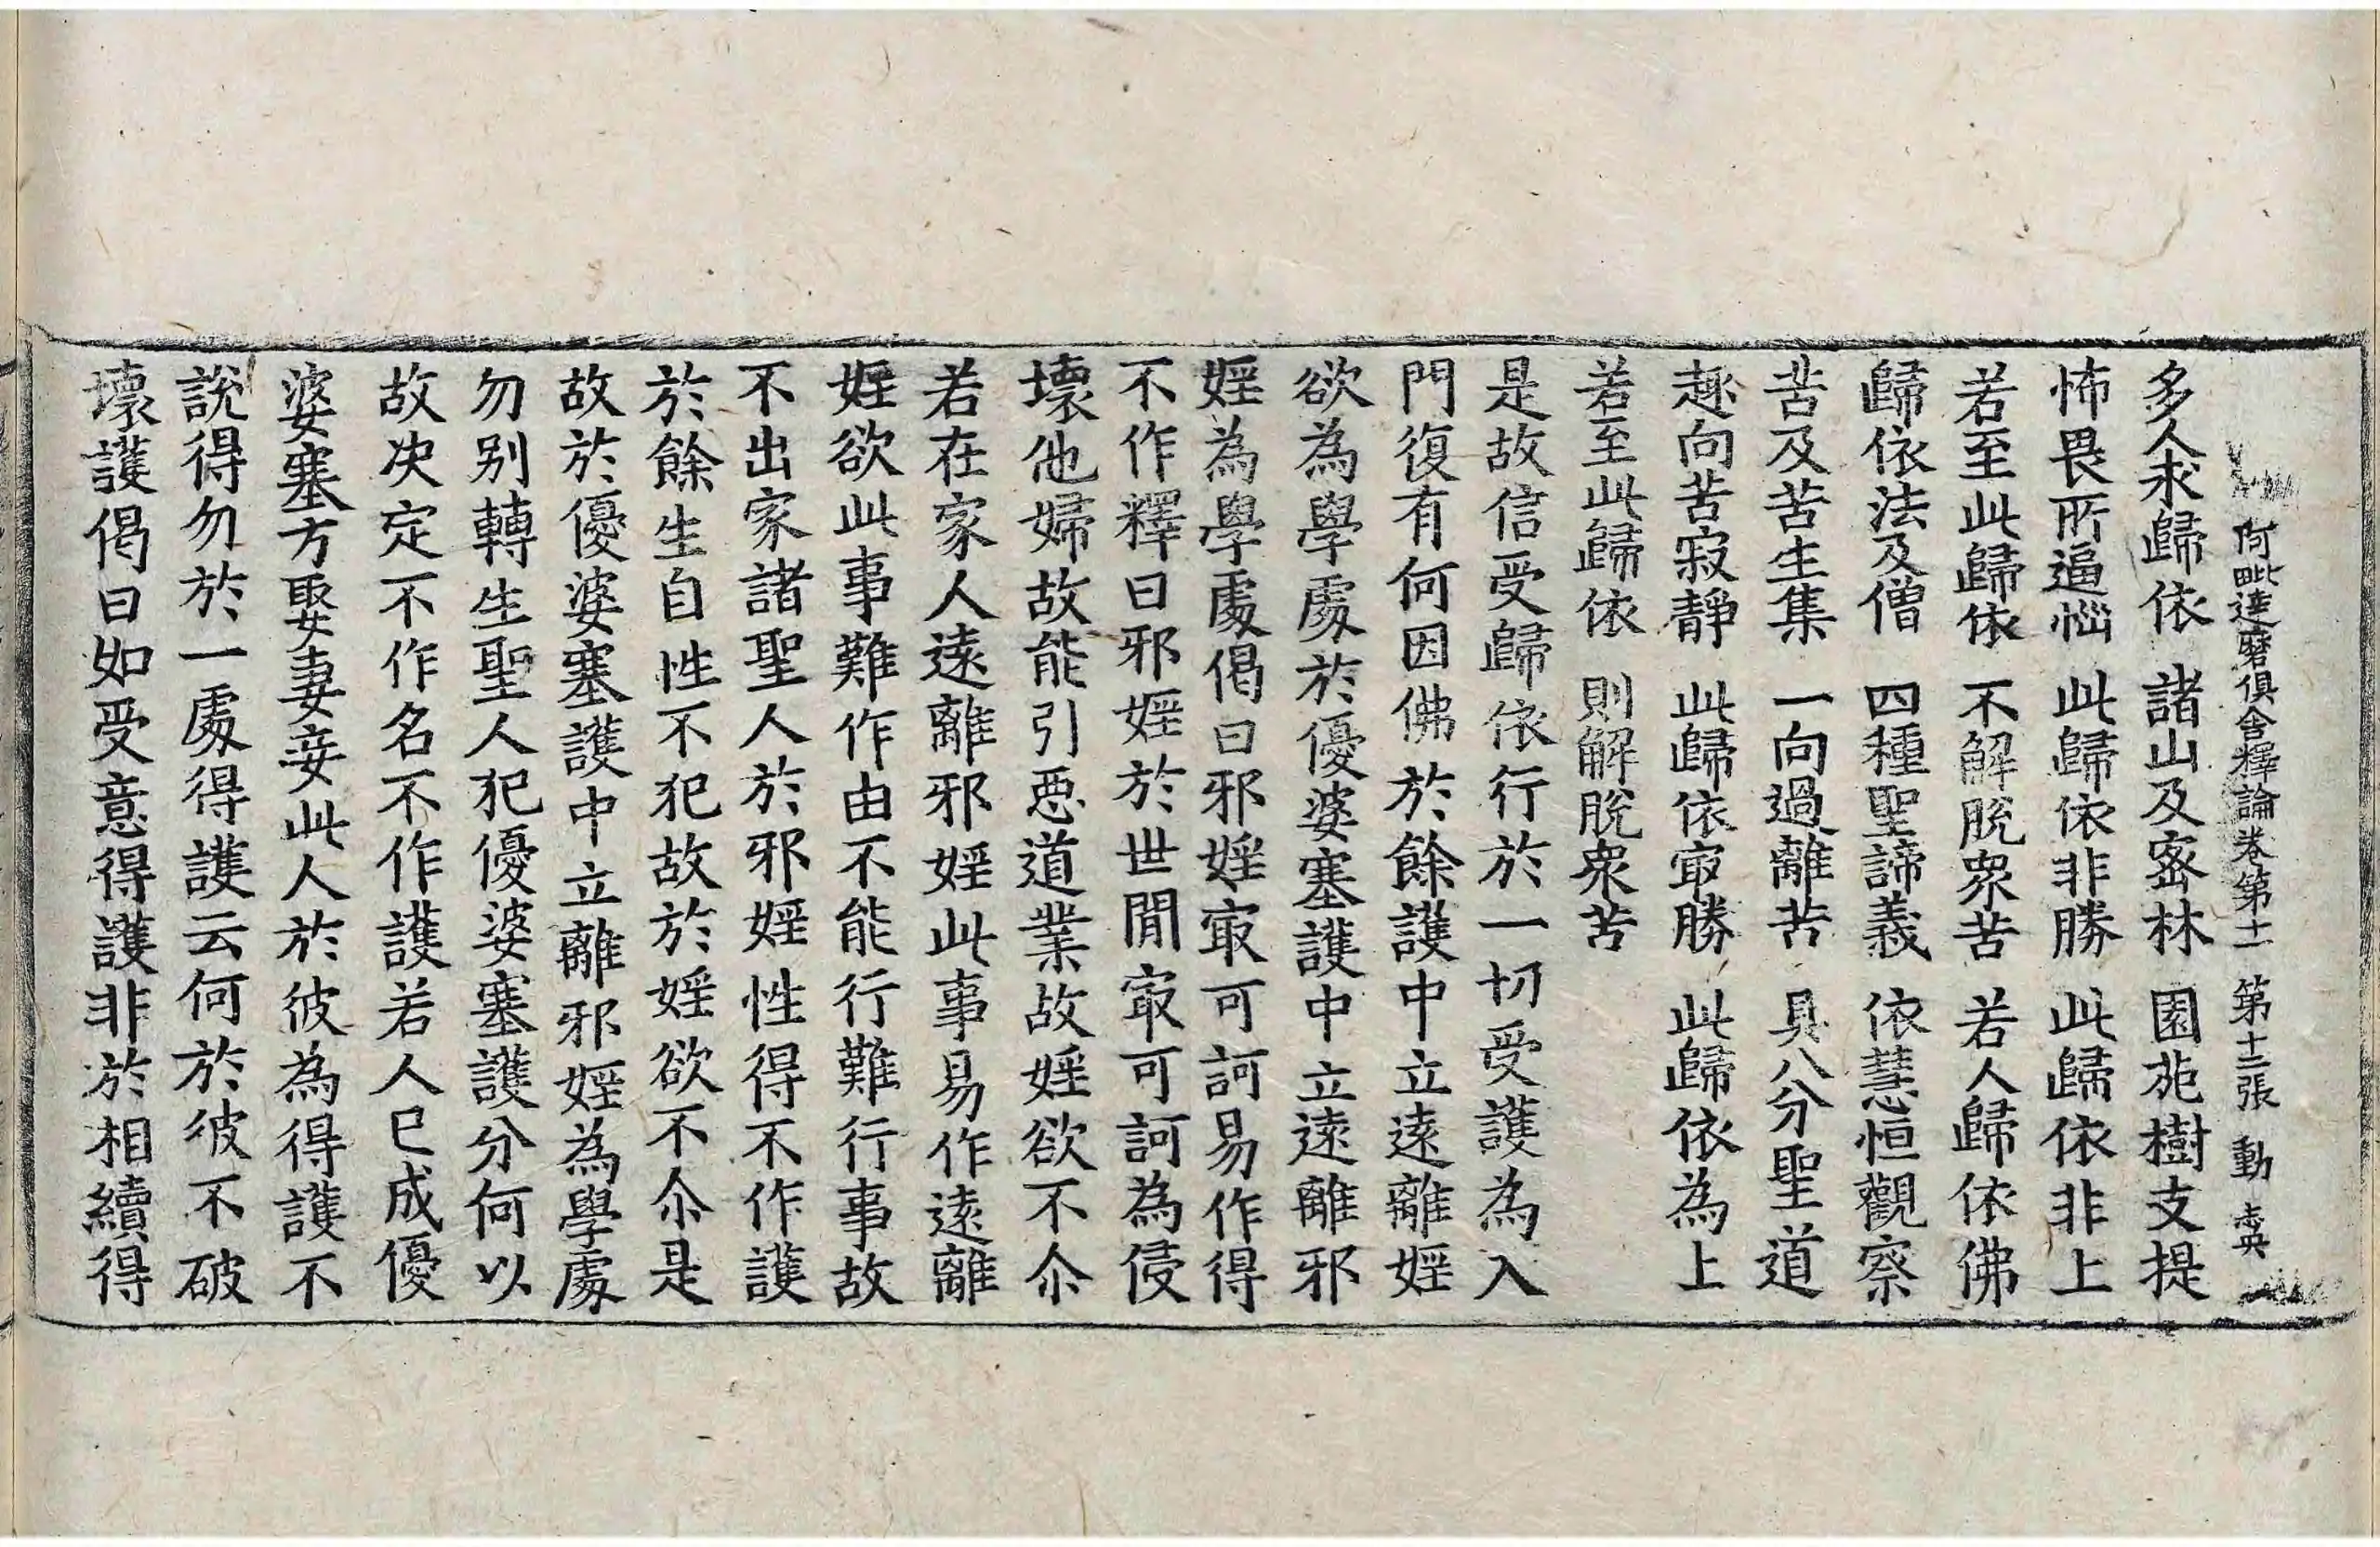 阿毗達磨俱舍釋論卷第十一 第十二張 動 盂英
多人求歸依 諸山及密林 園苑樹支提
怖畏所逼惱 此歸依非勝 此歸依非上
若至此歸依 不解脫衆苦 若人歸依佛
歸依法及僧 四種聖諦義 依慧恒觀察
苦及苦生集 一向過離苦 具八分聖道
趣向苦寂靜 此歸依冣勝 此歸依為上
若至此歸依 則解脫衆苦
是故信受歸依行於一切受護為入
門復有何因佛於餘護中立遠離婬
欲為學處於優婆塞護中立遠離邪
婬為學處偈曰邪婬冣可訶易作得
不作釋曰邪婬於世閒冣可訶為侵
壞他婦故能引惡道業故婬欲不尒
若在家人遠離邪婬此事易作遠離
婬欲此事難作由不能行難行事故
不出家諸聖人於邪婬性得不作護
於餘生自性不犯故於婬欲不尒是
故於優婆塞護中立離邪婬為學處
勿別轉生聖人犯優婆塞護分何以
故决定不作名不作護若人已成優
婆塞方娶妻妾此人於彼為得護不
說得勿於一處得護云何於彼不破
壞護偈曰如受意得護非於相續得